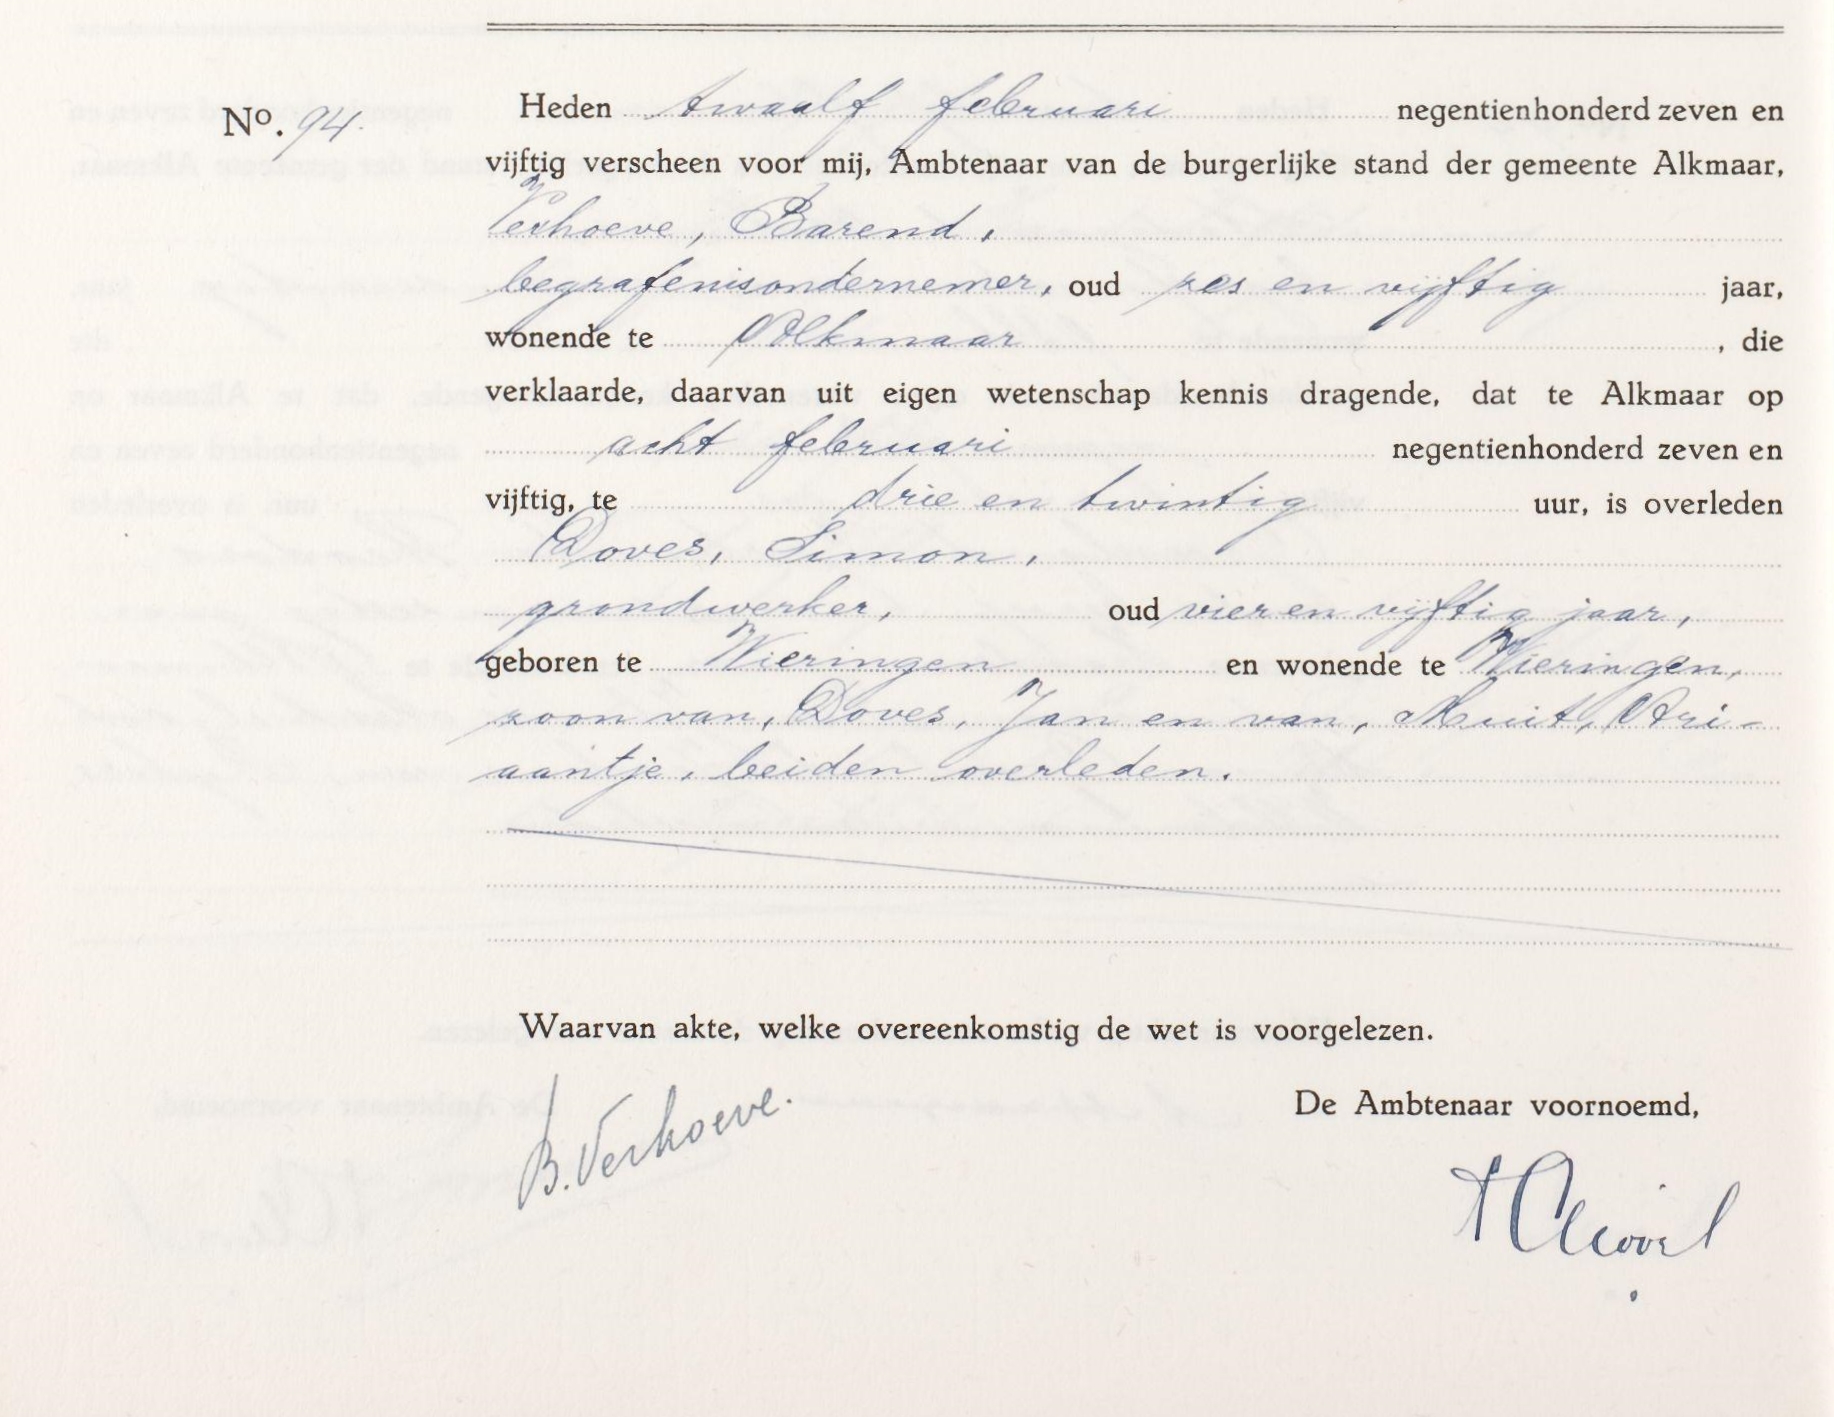 No. 94.
Heden twaalf februari negentienhonderd zeven en
vijftig verscheen voor mij, Ambtenaar van de burgerlijke stand der gemeente Alkmaar,
Verhoeve, Barend,
begrafenisondernemer, oud zes en vijftig jaar,
wonende te Alkmaar, die
verklaarde, daarvan uit eigen wetenschap kennis dragende, dat te Alkmaar op
acht februari negentienhonderd zeven en
vijftig, te drie en twintig uur, is overleden
Doves, Simon,
grondwerker, oud vier en vijftig jaar,
geboren te Wieringen en wonende te Wieringen,
zoon van, Doves, Jan en van, Kuit, Ari-
aantje, beiden overleden.
Waarvan akte, welke overeenkomstig de wet is voorgelezen.
De Ambtenaar voornoemd,
B. Verhoeve.